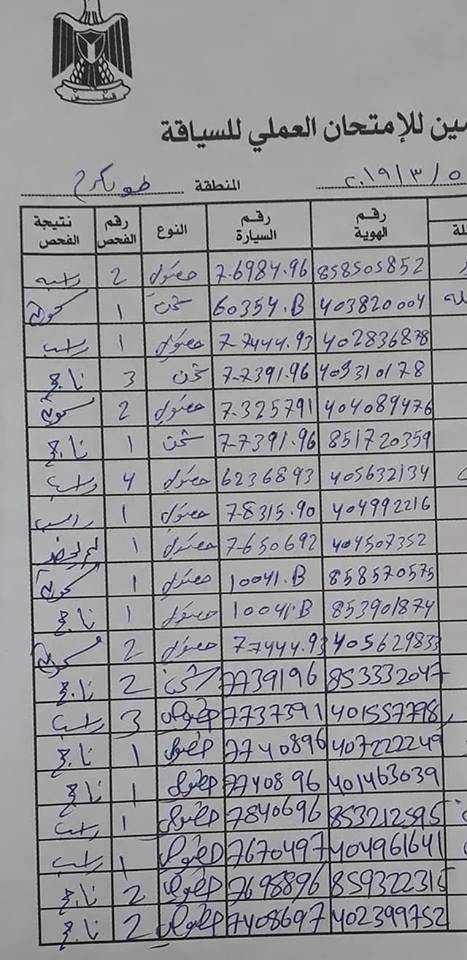 فلسطين
مين للإمتحان العملي للسياقة
٢٠١٩/٣/٥ المنطقة طولكرم
لة رقم الهوية رقم السيارة النوع رقم الفحص نتيجة الفحص
858505852 7-6984.96 خصوصي 2 راسب
403820004 60354.B شحن 1
402836878 7-7444.93 خصوصي 1 راسب
409310178 7-7391.96 شحن 3 ناجح
404089476 7-325791 خصوصي 2
851720359 7-7391.96 شحن 1 ناجح
405632134 6236893 خصوصي 4 راسب
404992216 78315.90 خصوصي 1 راسب
404507352 7-650692 خصوصي 1 لم يحضر
858570575 10041.B خصوصي 1
853901874 10041.B خصوصي 1 ناجح
405629833 77444.93 خصوصي 2
853332047 7739196 شحن 2 ناجح
401557798 7737391 خصوصي 3 راسب
407222249 7740896 خصوصي 1 ناجح
401463039 7740896 خصوصي 1 ناجح
853212595 7840696 خصوصي 1 راسب
404961641 7670497 خصوصي 1 راسب
859322315 7698896 خصوصي 2 ناجح
402399752 7408697 خصوصي 2 ناجح